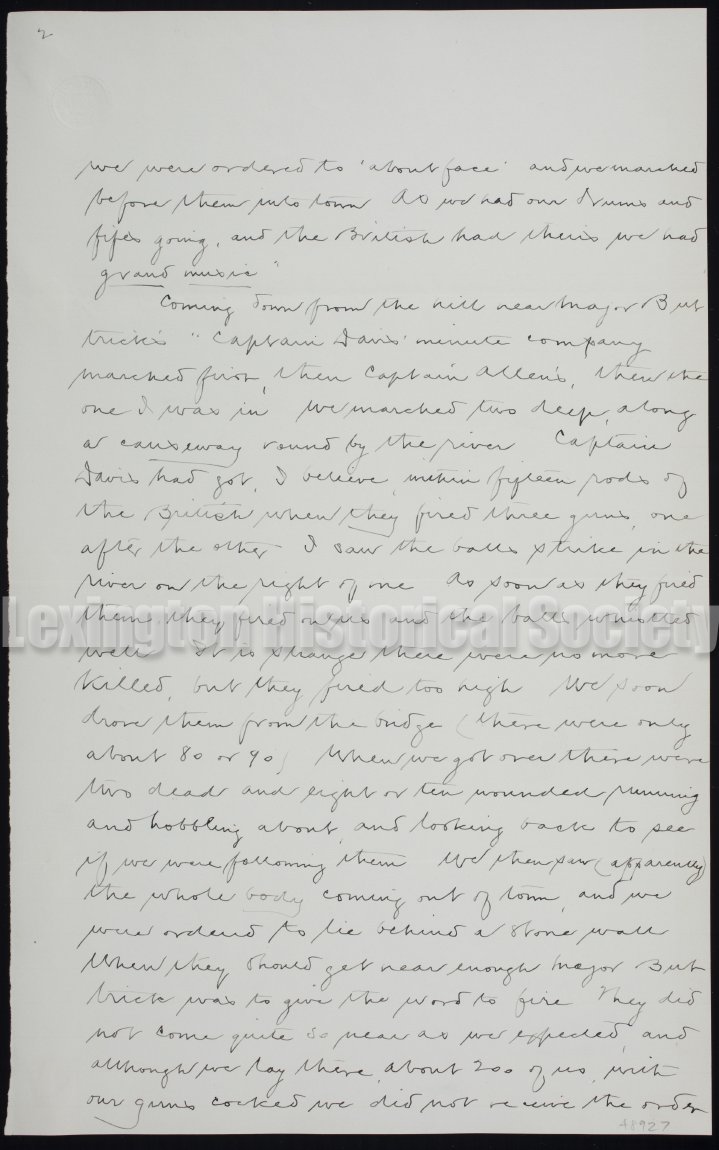 2
we were ordered to 'about face' and we marched
before them into town As we had our drums and
fifes going, and the British had theirs we had
grand music"
Coming down from the hill near Major But
trick's "Captain Davis' minute company
marched first, then Captain Allen's, then the
one I was in We marched two deep, along
a causeway round by the river Captain
Davis had got, I believe, within fifteen rods of
the British when they fired three guns, one
after the other I saw the balls strike in the
river on the right of me As soon as they fired
them, they fired on us and the balls whistled
well It is strange there were no more
killed, but they fired too high We soon
drove them from the bridge (there were only
about 80 or 90) When we got over there were
two dead and eight or ten wounded running
and hobbling about, and looking back to see
if we were following them We then saw (apparently)
the whole body coming out of town, and we
were ordered to lie behind a stone wall
When they should get near enough Major But
trick was to give the word to fire They did
not come quite so near as we expected, and
although we lay there, about 200 of us, with
our guns cocked we did not receive the order
48927
Lexington Historical Society